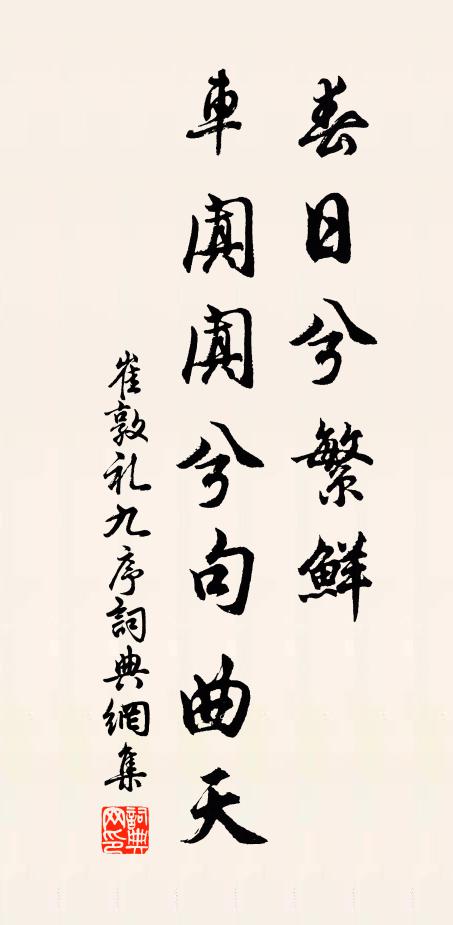 春日兮繁鮮
車闐闐兮句曲天
崔敦礼九序詞典網集
詞典网印